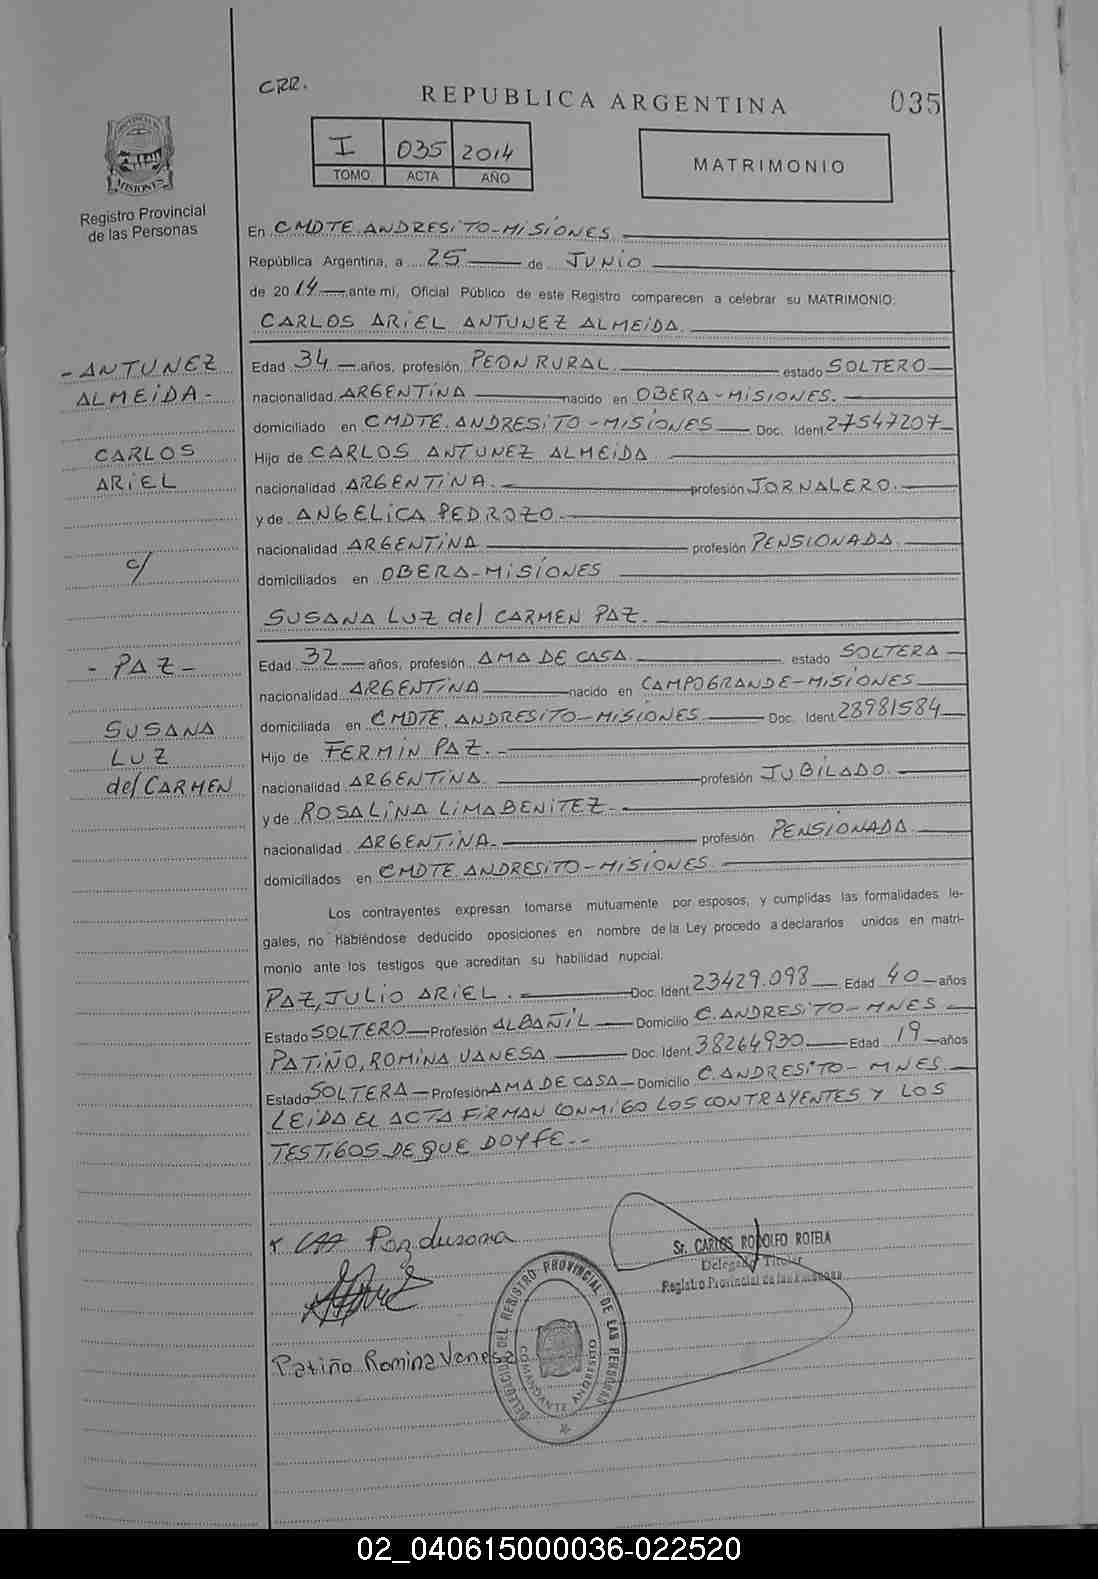 CRR.
REPUBLICA ARGENTINA
035
I 035 2014
TOMO ACTA AÑO
MATRIMONIO
PROVINCIA DE
MISIONES
Registro Provincial
de las Personas
En CMDTE. ANDRESITO-MISIONES
República Argentina, a 25 de JUNIO
de 2014 ante mí, Oficial Público de este Registro comparecen a celebrar su MATRIMONIO:
CARLOS ARIEL ANTUNEZ ALMEIDA.
- ANTUNEZ
ALMEIDA -
CARLOS
ARIEL
c/
- PAZ -
SUSANA
LUZ
del CARMEN
Edad 34 años, profesión PEON RURAL estado SOLTERO
nacionalidad ARGENTINA nacido en OBERA-MISIONES.
domiciliado en CMDTE. ANDRESITO-MISIONES Doc. Ident. 27547207
Hijo de CARLOS ANTUNEZ ALMEIDA
nacionalidad ARGENTINA. profesión JORNALERO.
y de ANGELICA PEDROZO.
nacionalidad ARGENTINA profesión PENSIONADA.
domiciliados en OBERA-MISIONES
SUSANA LUZ del CARMEN PAZ.
Edad 32 años, profesión AMA DE CASA. estado SOLTERA
nacionalidad ARGENTINA nacido en CAMPO GRANDE-MISIONES
domiciliada en CMDTE. ANDRESITO-MISIONES Doc. Ident. 28981584
Hijo de FERMIN PAZ.
nacionalidad ARGENTINA. profesión JUBILADO.
y de ROSALINA LIMA BENITEZ.
nacionalidad ARGENTINA. profesión PENSIONADA.
domiciliados en CMDTE. ANDRESITO-MISIONES.
Los contrayentes expresan tomarse mutuamente por esposos, y cumplidas las formalidades le-
gales, no habiéndose deducido oposiciones en nombre de la Ley procedo a declararlos unidos en matri-
monio ante los testigos que acreditan su habilidad nupcial.
PAZ, JULIO ARIEL. Doc. Ident. 23429.098 Edad 40 años
Estado SOLTERO Profesión ALBAÑIL Domicilio C. ANDRESITO-MNES
PATIÑO, ROMINA VANESA Doc. Ident. 38264930 Edad 19 años
Estado SOLTERA Profesión AMA DE CASA Domicilio C. ANDRESITO-MNES
LEIDA EL ACTA FIRMAN CONMIGO LOS CONTRAYENTES Y LOS
TESTIGOS DE QUE DOY FE.-
Paz Susana
Sr. CARLOS RODOLFO ROTELA
Delegado Titular
Registro Provincial de las Personas
Patiño Romina Vanesa
DELEGACION DEL REGISTRO PROVINCIAL DE LAS PERSONAS
COMANDANTE ANDRESITO
02_040615000036-022520